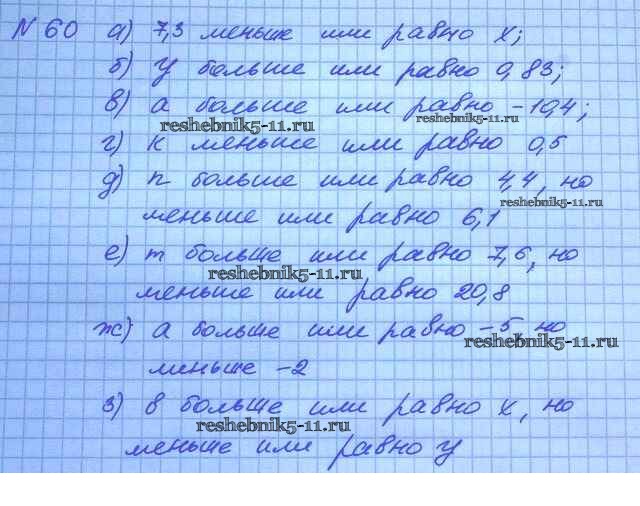 N 60 а) 7,3 меньше или равно х;
б) у больше или равно 0,83;
в) а больше или равно -10,4;
reshebnik5-11.ru reshebnik5-11.ru
г) к меньше или равно 0,5
д) n больше или равно 4,4, но
reshebnik5-11.ru
меньше или равно 6,1
е) m больше или равно 7,6, но
reshebnik5-11.ru
меньше или равно 20,8
ж) а больше или равно -5 но
reshebnik5-11.ru
меньше -2
з) в больше или равно х, но
reshebnik5-11.ru
меньше или равно у